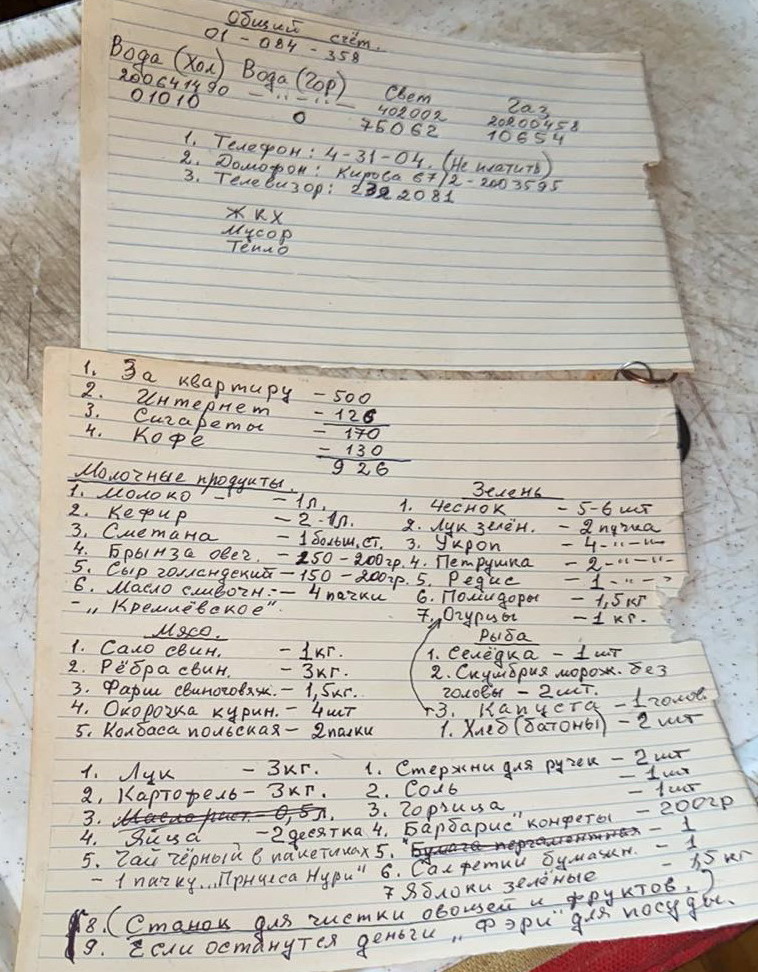 Общий счёт.
01 - 084 - 358
Вода (Хол) Вода (Гор) Свет Газ
200641490 - " - " - 402002 20200458
01010 0 75062 10654
1. Телефон: 4-31-04. (Не платить)
2. Домофон: Кирова 67/2 - 2003595
3. Телевизор: 2322081
ЖКХ
Мусор
Тепло
1. За квартиру - 500
2. Интернет - 126
3. Сигареты - 170
4. Кофе - 130
926
Молочные продукты.
1. Молоко - - 1л.
2. Кефир - 2-1л.
3. Сметана - 1 больш. ст.
4. Брынза овеч. - 250-200гр.
5. Сыр голландский - 150-200гр.
6. Масло сливочн. - 4 пачки
- „Кремлёвское".
Зелень
1. Чеснок - 5-6 шт
2. Лук зелён. - 2 пучка
3. Укроп - 4 - " - " -
4. Петрушка - 2 - " - " -
5. Редис - 1 - " - "
6. Помидоры - 1,5 кг
7. Огурцы - 1 кг.
Мясо.
1. Сало свин. - 1 кг.
2. Рёбра свин. - 3кг.
3. Фарш свиноговяж. - 1,5кг.
4. Окорочка курин. - 4 шт
5. Колбаса польская - 2 палки
Рыба
1. Селёдка - 1 шт
2. Скумбрия морож. без
головы - 2 шт.
3. Капуста - 1 голов.
1. Хлеб (батоны) - 2 шт
1. Лук - 3кг.
2. Картофель - 3кг.
3. Масло раст. - 0,5л.
4. Яйца - 2 десятка
5. Чай чёрный в пакетиках
- 1 пачку „Принцеса Нури"
1. Стержни для ручек - 2 шт
2. Соль - 1 шт
3. Горчица - 1 шт
4. „Барбарис" конфеты - 200гр
5. Бумага пергаментная - 1
6. Салфетки бумажн. - 1
7 Яблоки зелёные - 1,5 кг
8. (Станок для чистки овощей и фруктов.)
9. Если останутся деньги „Фэри" для посуды.